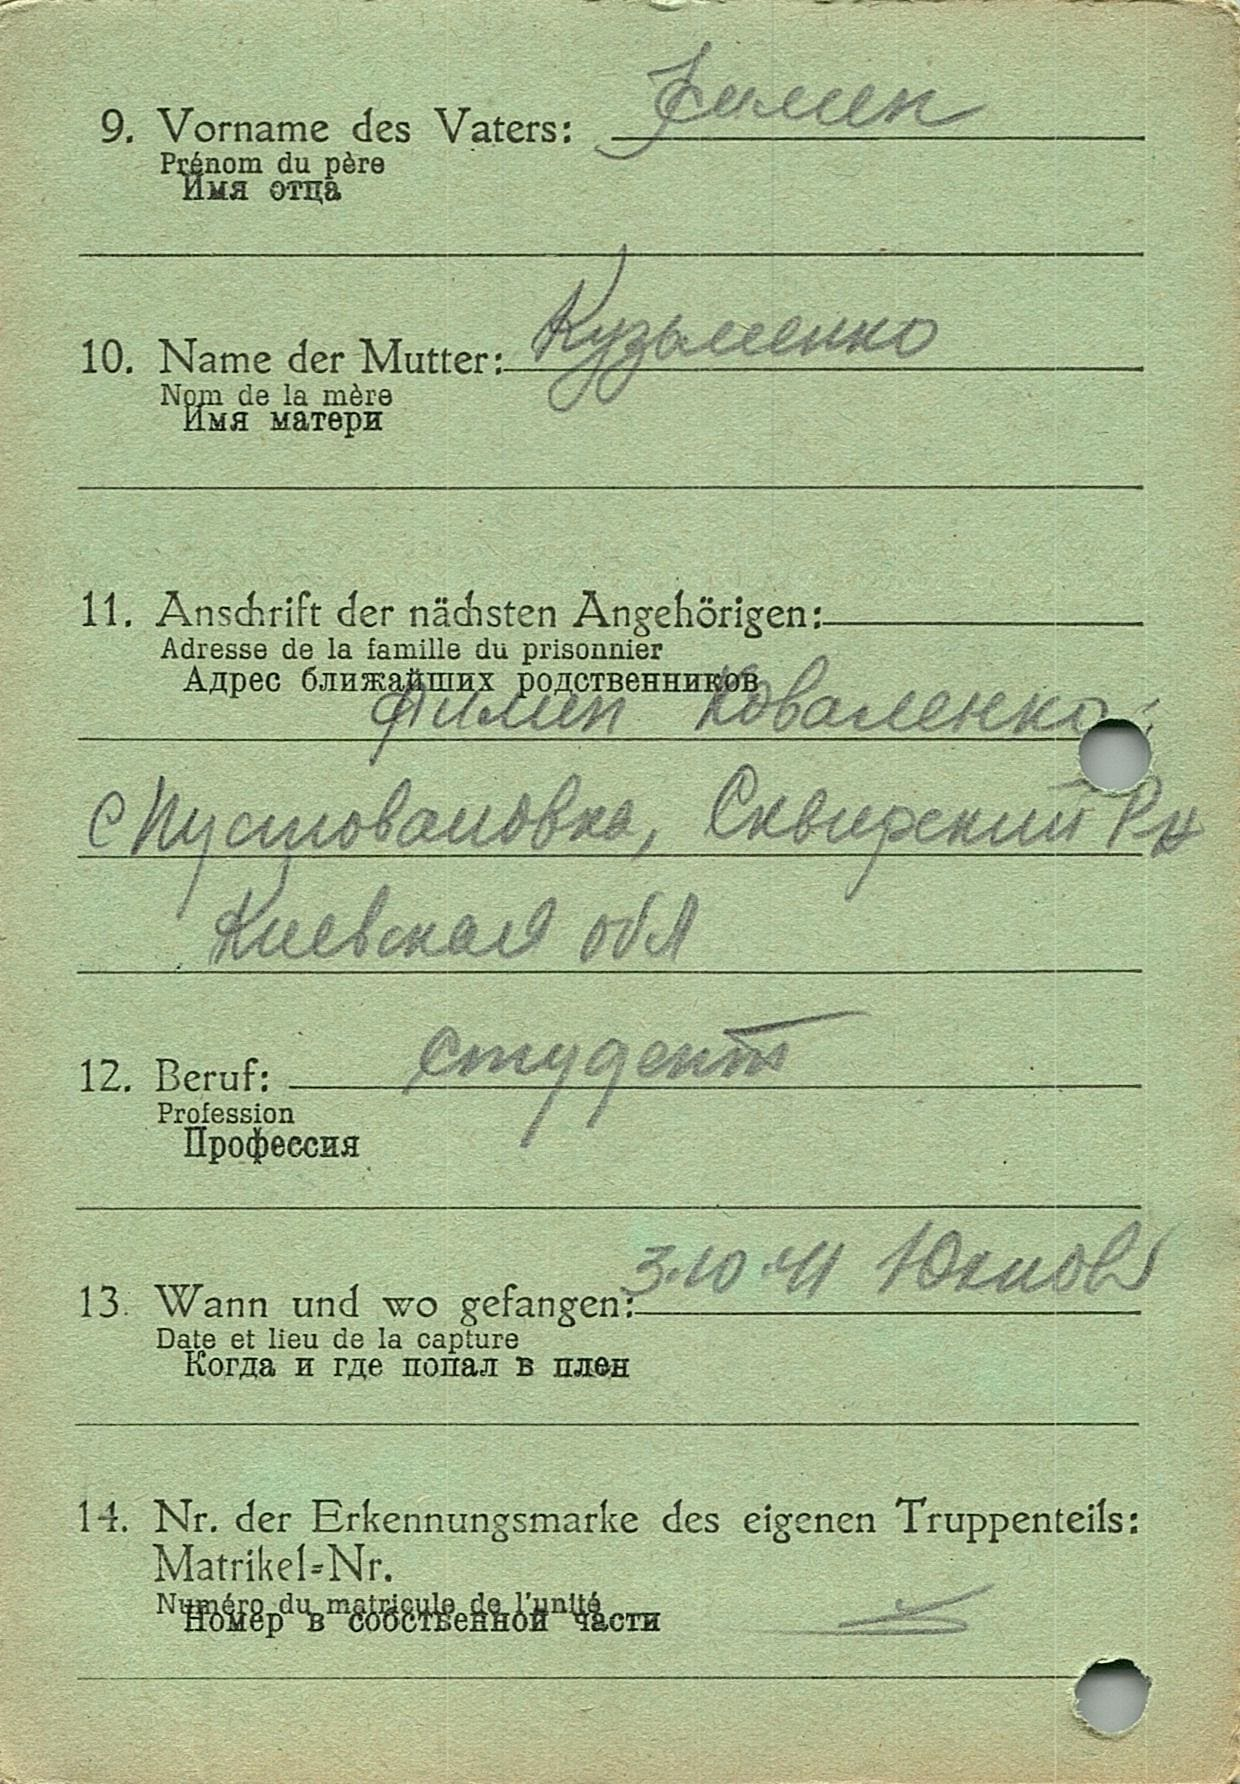 9. Vorname des Vaters: Филип
Prénom du père
Имя отца
10. Name der Mutter: Кузьменко
Nom de la mère
Имя матери
11. Anschrift der nächsten Angehörigen:
Adresse de la famille du prisonnier
Адрес ближайших родственников
Филип Коваленко
с Пустовановка, Сквирский Рн
Киевская обл
12. Beruf: студент
Profession
Профессия
13. Wann und wo gefangen: 3.10.41 Юхнов
Date et lieu de la capture
Когда и где попал в плен
14. Nr. der Erkennungsmarke des eigenen Truppenteils:
Matrikel=Nr.
Numéro du matricule de l'unité
Номер в собственной части